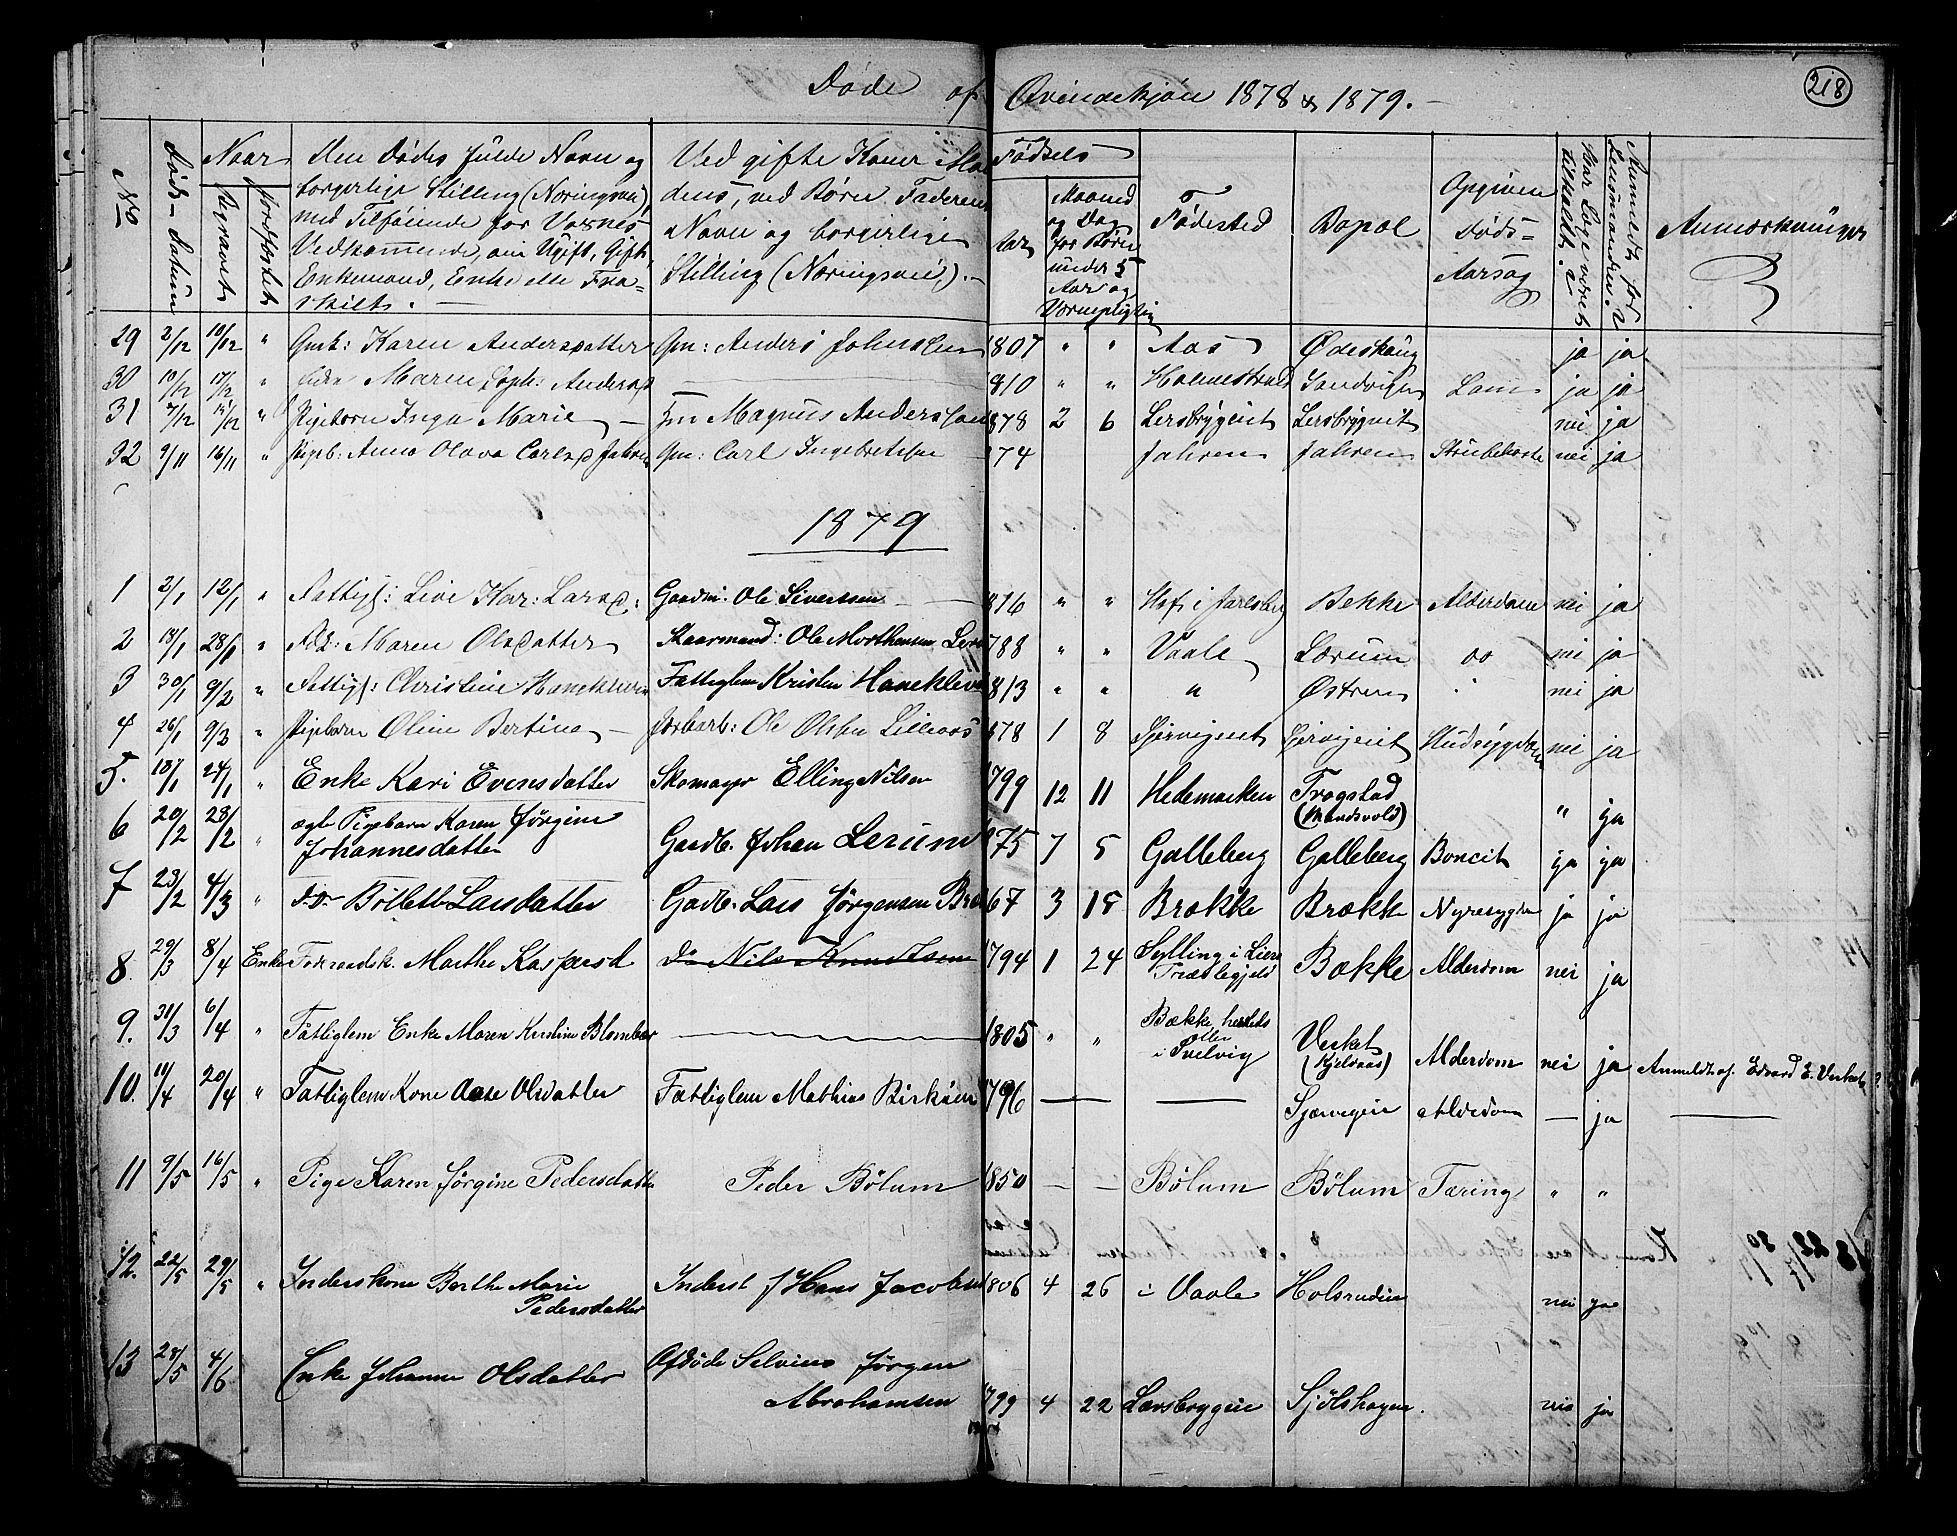 Døde af Qvindekjøn 1878 & 1879.
218
No
Døds-Datum
Naar
Begravet
Jordfæstet
Den Dødes fulde Navn og
borgerlige Stilling (Næringsvei)
med Tilføiende for Voxnes
Vedkommende, om Ugift, Gift,
Enkemand, Enke elle Fra-
skilt.
Ved gifte Koner Man
dens, ved Børn Faderens
Navn og borgerlige
Stilling (Næringsvei).
Fødsels
Aar
Maaned
og Dag
for Børn
under 5
Aar og
Værnepligtig
Fødested
Bopæl
Opgiven
Døds-
Aarsag
Har Læge været
tilkaldt?
Anmeldt for
Lensmanden?
Anmærkninger
29 2/12 10/12 " Gmk: Karen Andersdatter Gm: Anders Johnsen 1807 " " Aas Ødeskaug ja ja
30 10/12 17/12 " Maren Soph: Andersd 1810 " " Holmestrand Sandvigen Lam ja ja
31 7/12 15/12 " Pigebarn Inga Marie Magnus Andersson 878 2 6 Lersbryggeit Lersbryggeit nei ja
32 9/11 16/11 " Pigeb: Anna Olava Carlsd Fahren Gm: Carl Ingebretsen 874 Fahren Fahren Strubehoste nei ja
1879
1 2/1 12/1 " Fattigl: Live Kar: Larsd: Gaardm: Ole Sivertsen 816 " " Hof i Jarlsberg Bekke Alderdom nei ja
2 18/1 28/1 " Maren Olsdatter Skaarmand: Ole Morthensen 788 " " Vaale Lærum do nei ja
3 30/1 9/2 " Fattigl: Christine Haneklven Fattiglem Kristen Haneklev 813 " " " Østren " nei ja
4 26/1 9/3 " Pigebarn Oline Bertine Ole Olsen 878 1 8 nei ja
5. 18/1 24/1 " Enke Kari Evensdatter Skomager Elling Nilsen 1799 12 11 Hedemarken Trogstad
(Mandsvold) " ja
6 20/2 28/2 " ægte Pigebarn Karen Jørgine
Johannesdatter Gaardb. Johan Lerum 875 7 5 Galleberg Galleberg ja ja
7 23/2 4/3 " Do Do Bollette Larsdatter Gaardb. Lars Jørgensen 67 3 18 Brække Brække Nyresygdom ja ja
8. 29/3 8/4 Enke Foderaadsk. Marthe Kaspersd Do Nils Knudtsen 1794 1 24 Sylling i Liers
Præstegjeld Bække Alderdom nei ja
9. 31/3 6/4 " Fattiglem Enke Maren Kirstine Blomber 1805 " " Bække herreds
eller
i Svelvig Verket
(Kjelsaas) Alderdom nei ja Anmeldt af Edvard E. Verket
10. 10/4 20/4 " Fattiglem Kone Aase Olsdatter Fattiglem Mathias 1796 — — Alderdom — ja
11 9/5 16/5 " Pige Karen Jørgine Pedersdatter Peder Bølum 1850 — — Bølum Bølum Tæring " "
12. 22/5 29/5 " Inderstkone Berthe Marie
Pedersdatter Inderst Hans Jacobsen 1806 4 26 i Vaale Holsrudeie nei ja
13 28/5 4/6 Enke Johanne Olsdatter Afdøde Selveier Jørgen
Abrahamsen 1799 4 22 Læsbryggeie Sjølshagen. nei ja